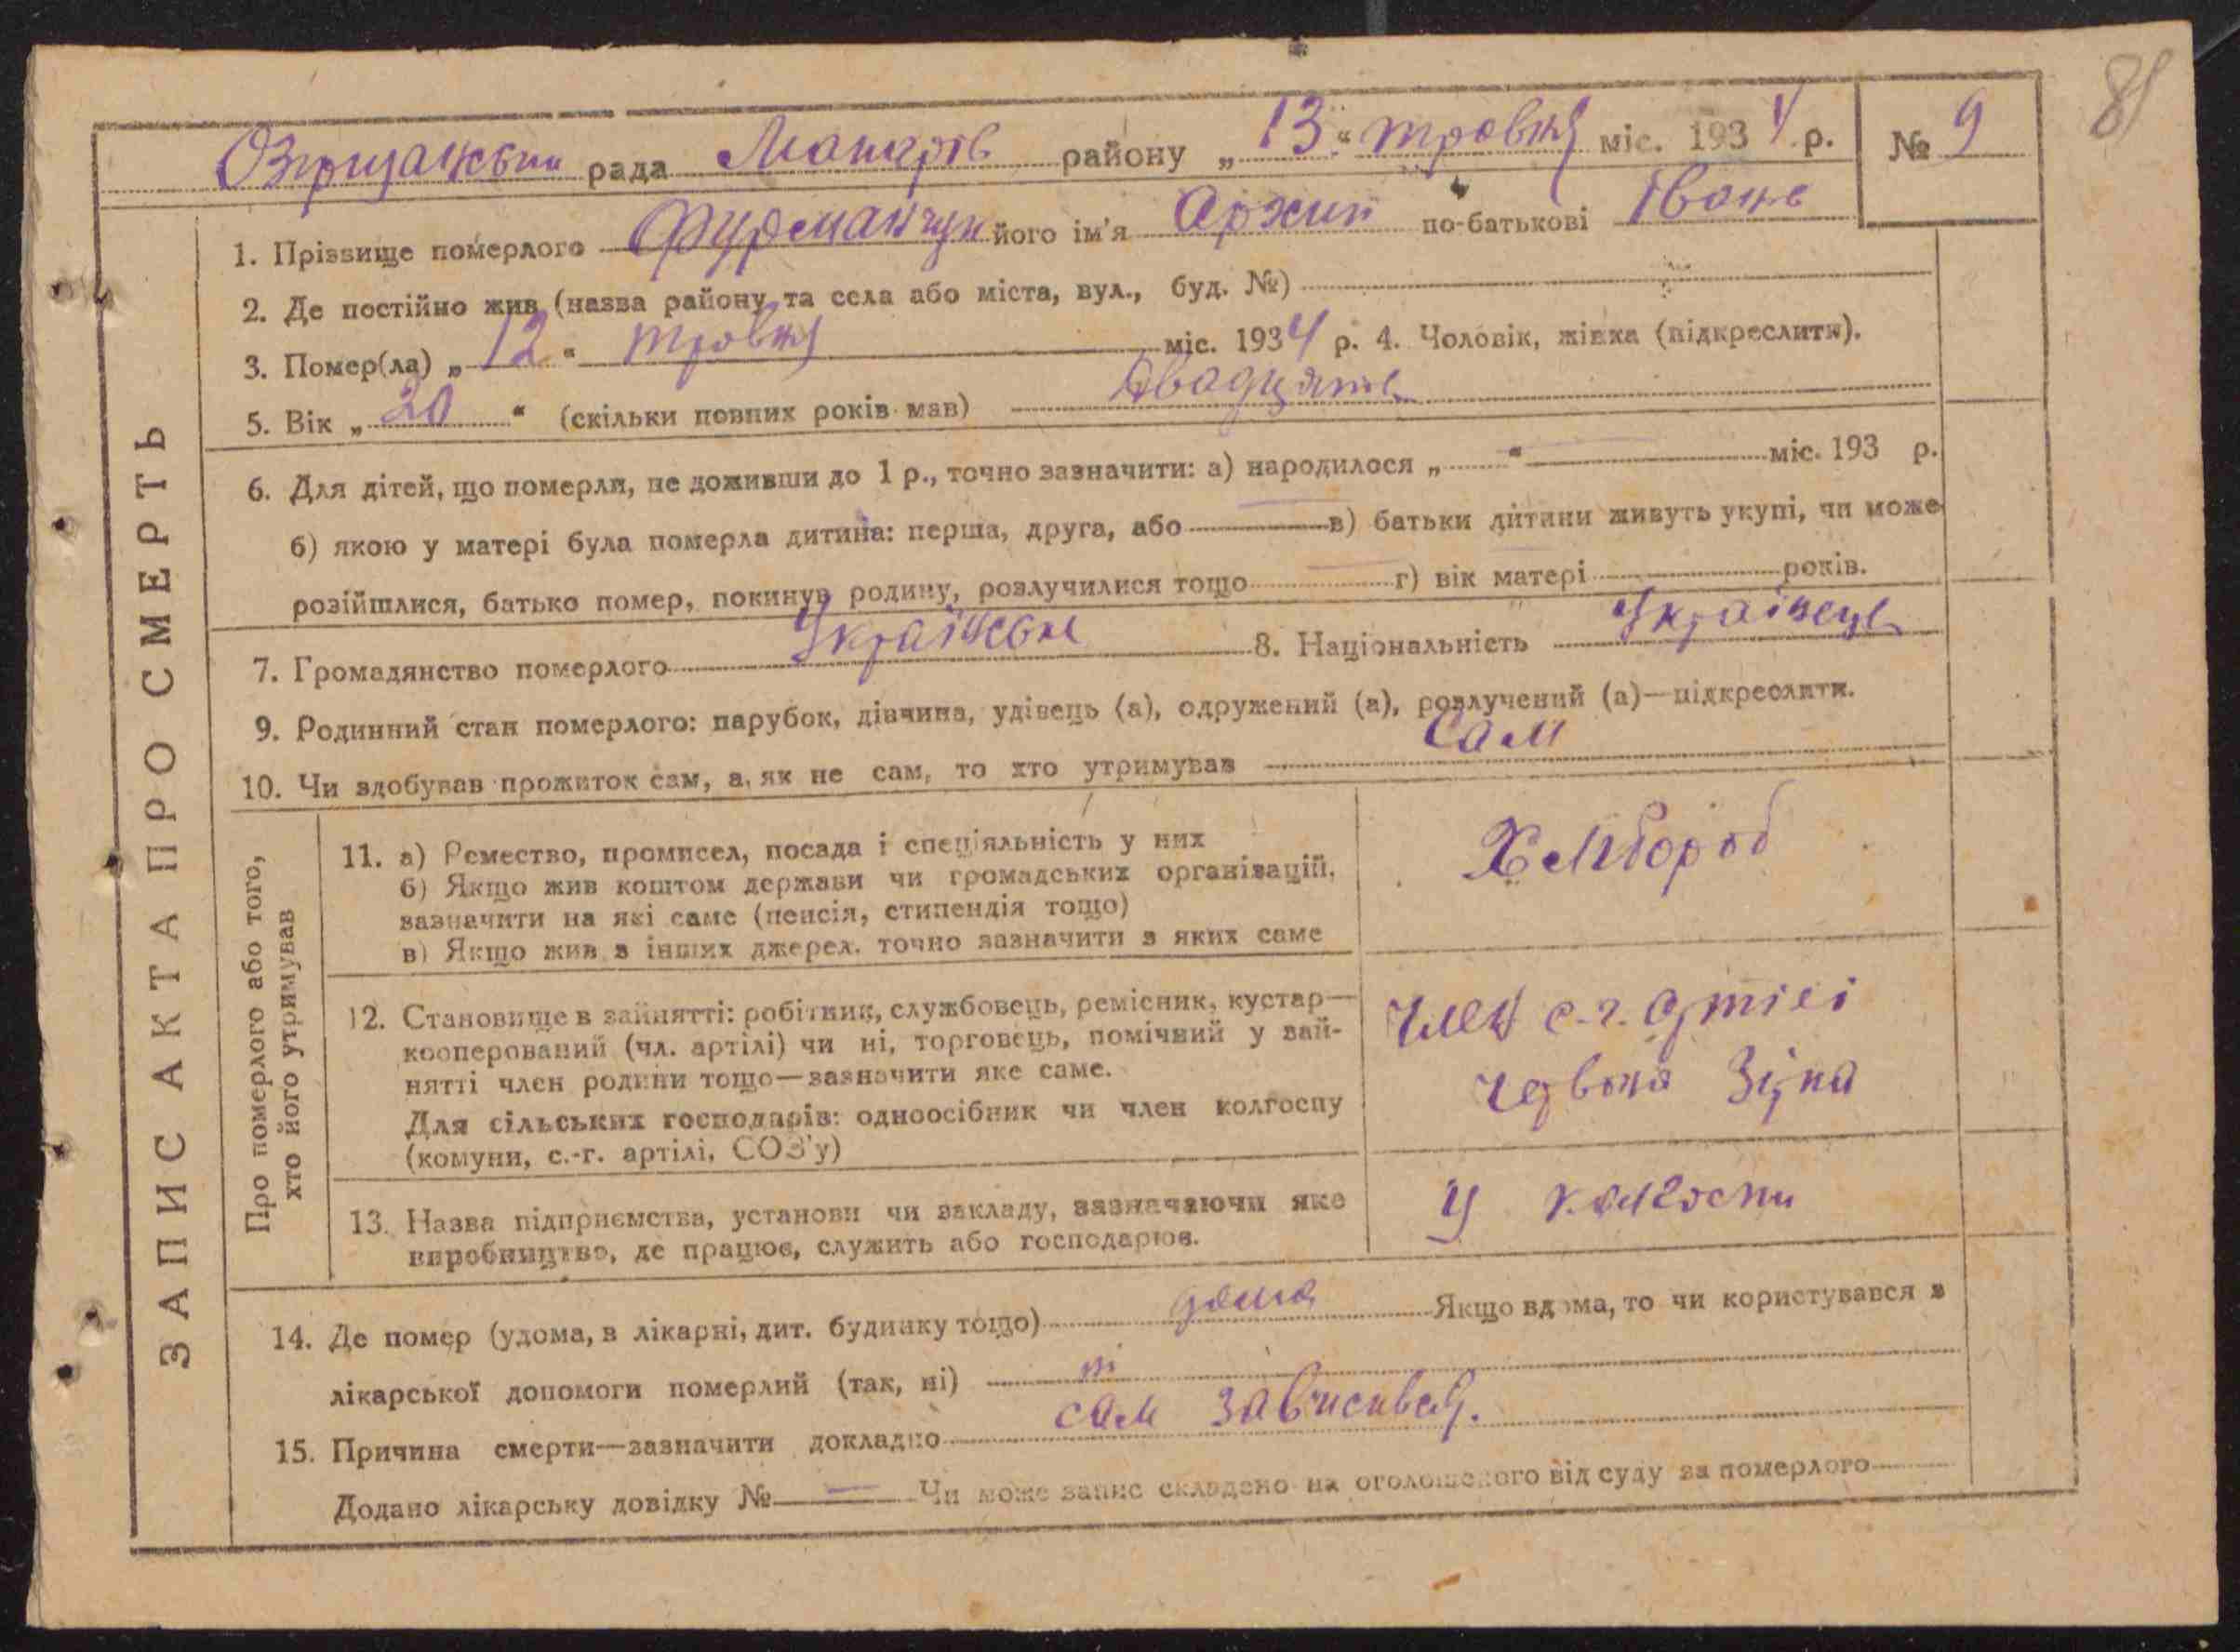 81
Озірщанська рада Макарів району „13“ тровня міс. 1934 р. № 9
1. Прізвище померлого Фурманчук його ім'я Архип по-батькові Іванв
2. Де постійно жив (назва району та села або міста, вул., буд. №)
3. Помер(ла) „12“ тровня міс. 1934 р. 4. Чоловік, жінка (підкреслити).
5. Вік „20“ (скільки повних років мав) двадцять
6. Для дітей, що померли, не доживши до 1 р., точно зазначити: а) народилося „ “ міс. 193 р.
б) якою у матері була померла дитина: перша, друга, або в) батьки дитини живуть укупі, чи може
розійшлися, батько помер, покинув родину, розлучилися тощо г) вік матері років.
7. Громадянство померлого 8. Національність Українець
9. Родинний стан померлого: парубок, дівчина, удівець (а), одружений (а), розлучений (а)—підкреслити.
10. Чи здобував прожиток сам, а, як не сам, то хто утримував сам
ЗАПИС АКТА ПРО СМЕРТЬ
Про померлого або того,
хто його утримував
11. а) Ремество, промисел, посада і спеціяльність у них
б) Якщо жив коштом держави чи громадських організацій,
зазначити на які саме (пенсія, стипендія тощо)
в) Якщо жив з інших джерел, точно зазначити з яких саме
Хлібороб
12. Становище в зайнятті: робітник, службовець, ремісник, кустар—
кооперований (чл. артілі) чи ні, торговець, помічний у зай-
нятті член родини тощо—зазначити яке саме.
Для сільських господарів: одноосібник чи член колгоспу
(комуни, с.-г. артілі, СОЗ'у)
член с.-г. артілі
червона Зірка
13. Назва підприємства, установи чи закладу, зазначаючи яке
виробництво, де працює, служить або господарює.
У колгоспи
14. Де помер (удома, в лікарні, дит. будинку тощо) дома Якщо вдома, то чи користувався з
лікарської допомоги померлий (так, ні) ні
15. Причина смерти—зазначити докладно сам
Додано лікарську довідку № — Чи може запис складено на оголошеного від суду за померлого